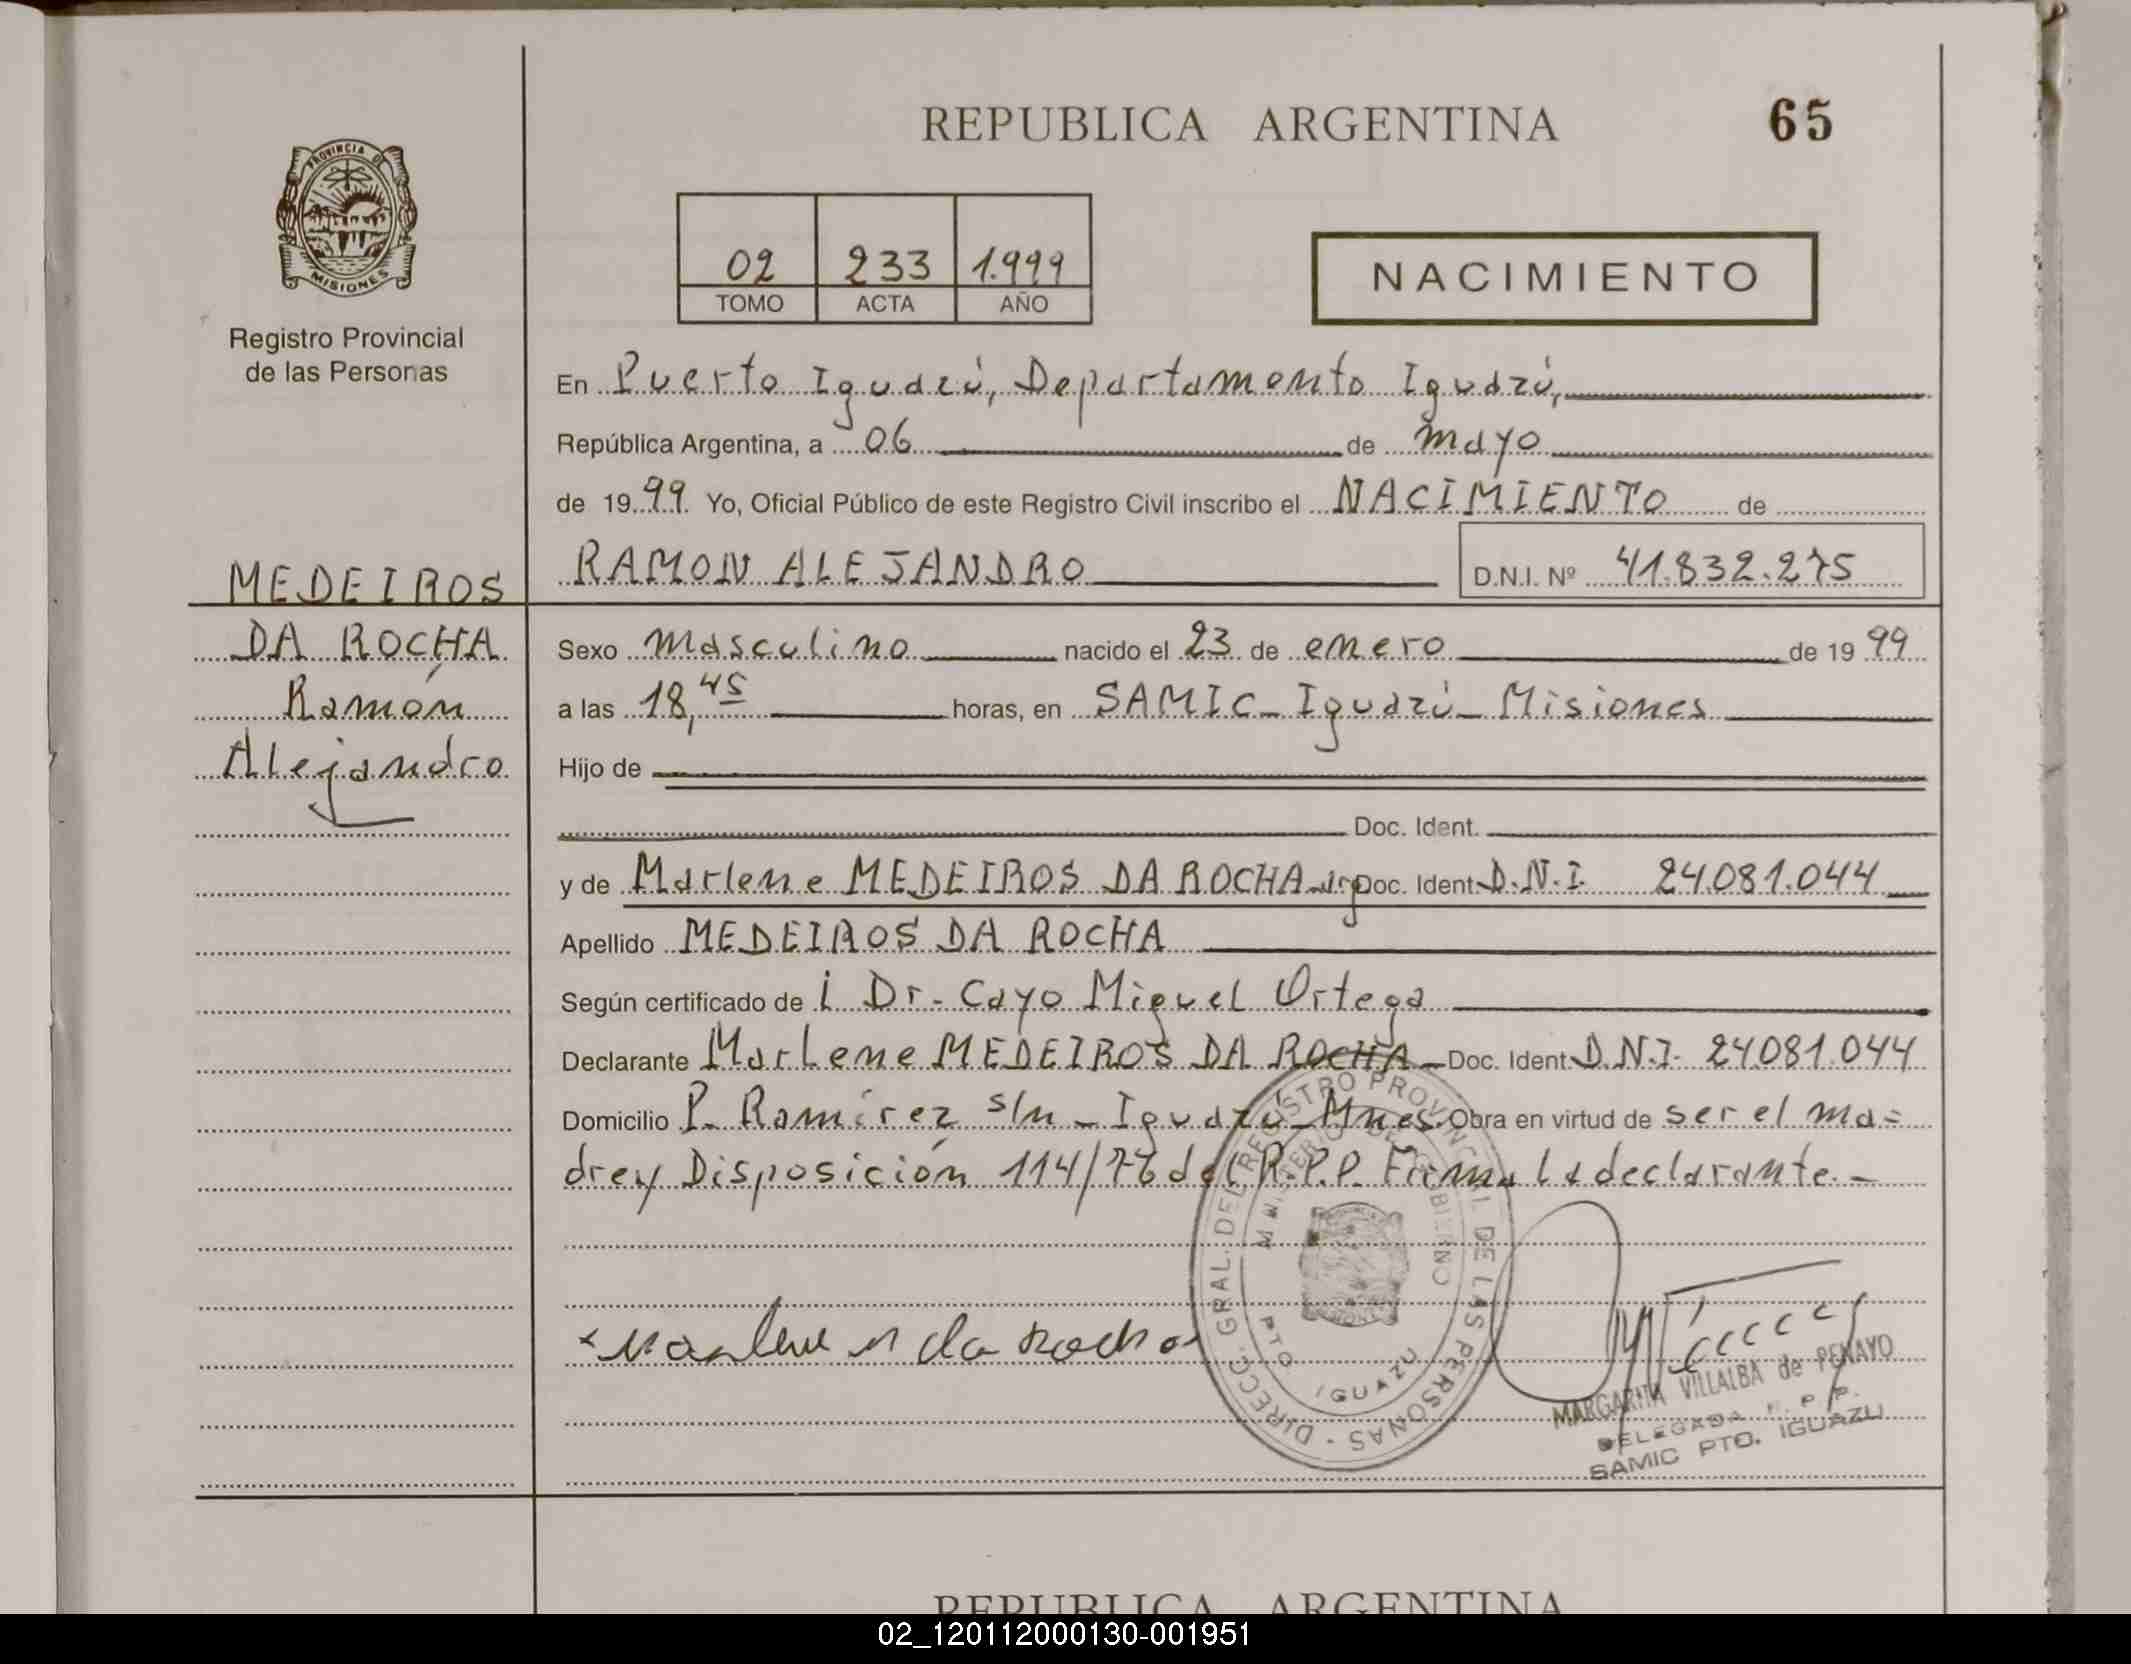 REPUBLICA ARGENTINA
65
PROVINCIA DE
MISIONES
Registro Provincial
de las Personas
02 233 1.999
TOMO ACTA AÑO
NACIMIENTO
En Puerto Iguazú, Departamento Iguazú,
República Argentina, a 06 de mayo
de 1999 Yo, Oficial Público de este Registro Civil inscribo el NACIMIENTO de
RAMON ALEJANDRO D.N.I. Nº 41.832.275
MEDEIROS
DA ROCHA
Ramón
Alejandro
Sexo masculino nacido el 23 de enero de 1999
a las 18,45 horas, en SAMIC - Iguazú - Misiones
Hijo de
Doc. Ident.
y de Marlene MEDEIROS DA ROCHA Doc. Ident. D.N.I. 24.081.044
Apellido MEDEIROS DA ROCHA
Según certificado de l Dr. Cayo Miguel Ortega
Declarante Marlene MEDEIROS DA ROCHA - Doc. Ident. D.N.I. 24.081.044
Domicilio P. Ramírez s/n - Iguazú - Mnes. Obra en virtud de ser el ma=
dre y Disposición 114/76 del R.P.P. Firma la declarante.-
Marlene M da Rocha
DIRECC. GRAL. DEL REGISTRO PROVINCIAL DE LAS PERSONAS -
MINISTERIO DE GOBIERNO
PTO. IGUAZU
MARGARITA VILLALBA de PENAYO
DELEGADA R. P. P.
SAMIC PTO. IGUAZU
REPUBLICA ARGENTINA
02_120112000130-001951